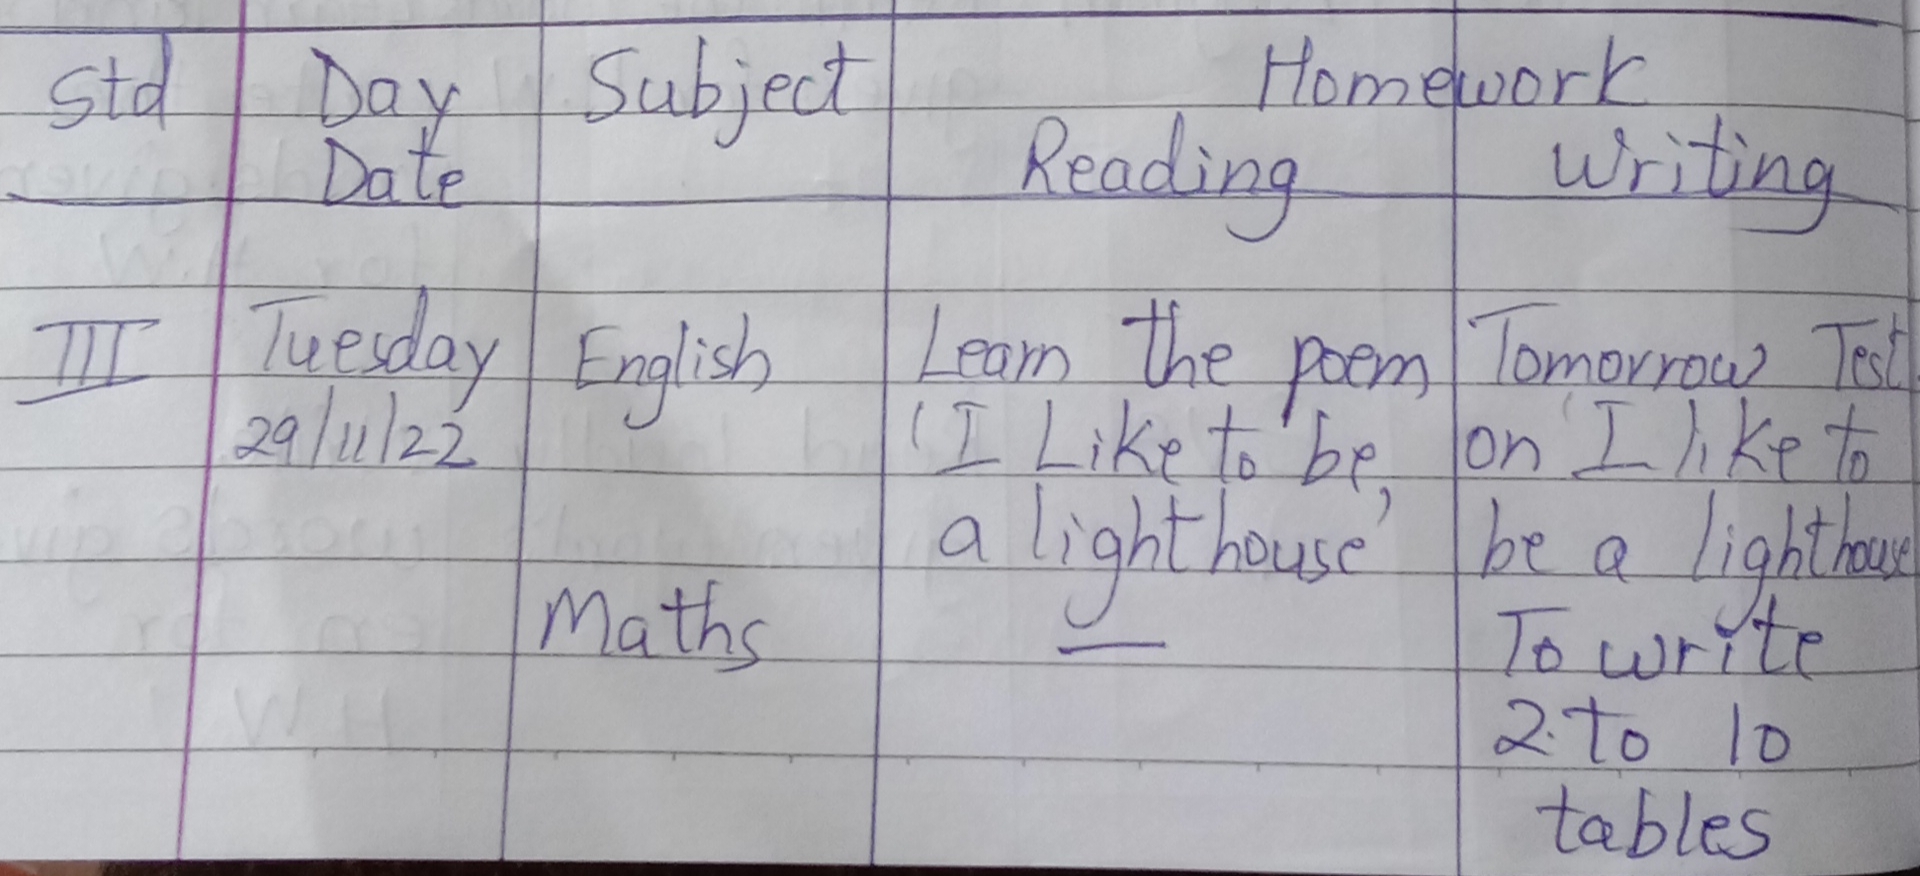 Std Day Subject Homework
Date Reading Writing
III Tuesday English Learn the poem Tomorrow Test
29/11/22 'I Like to be, on 'I like to
a lighthouse' be a lighthouse
Maths — To write
2 to 10
tables